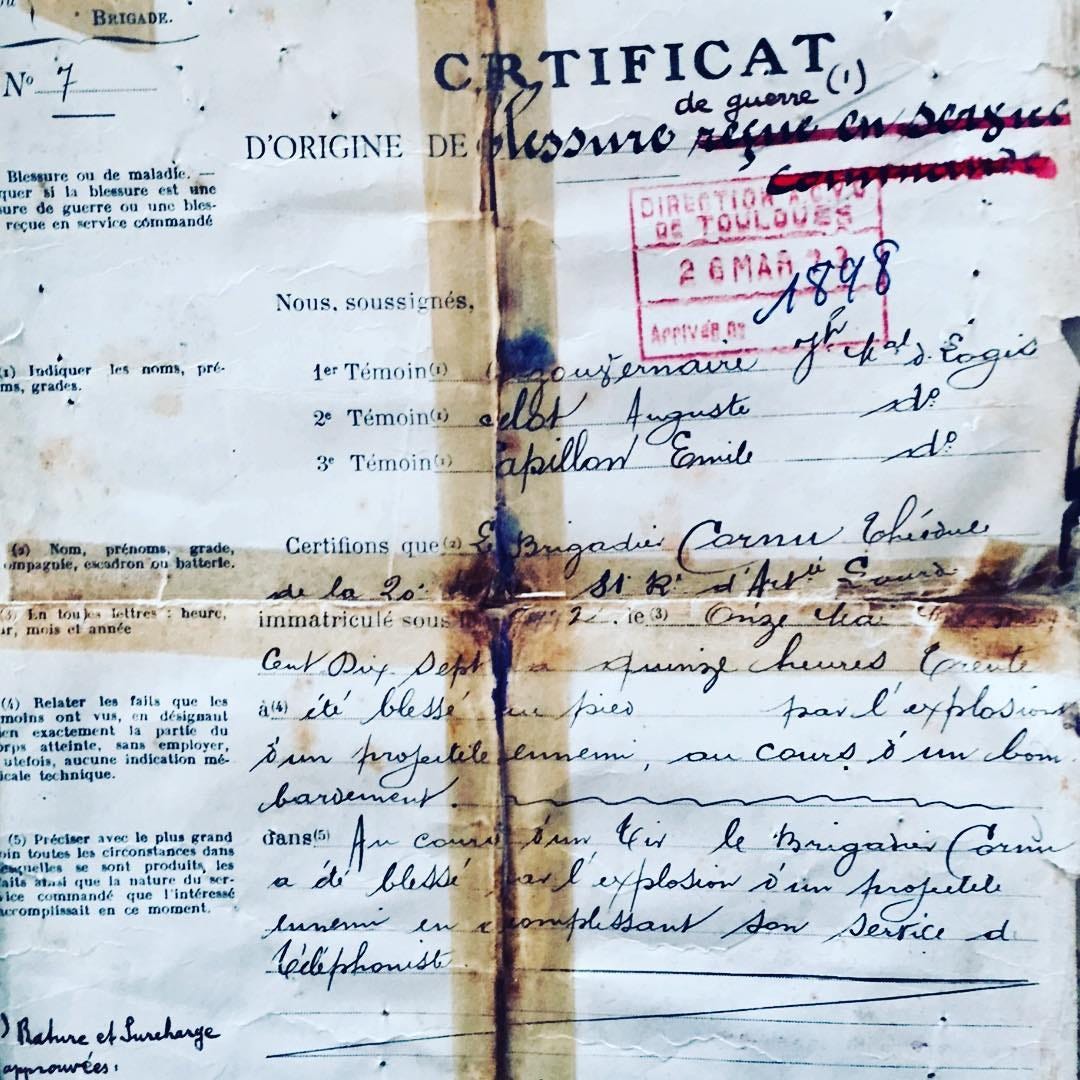 BRIGADE.
Nº 7
CERTIFICAT
de guerre (1)
D'ORIGINE DE blessure reçue en service
commandé
Blessure ou de maladie. —
quer si la blessure est une
sure de guerre ou une bles-
reçue en service commandé
DIRECTION
DE TOULOUSE
26 MAR
1898
Arrivée
Nous, soussignés,
(1) Indiquer les noms, pré-
ms, grades.
1er Témoin(1) Jh Mal d. Logis
2e Témoin(1) Auguste do
3e Témoin(1) apillon Emile do
(2) Nom, prénoms, grade,
ompagnie, escadron ou batterie.
Certifions que(2) Le Brigadier Cornu
de la 20e Rt d'Artie Lourd
(3) En toutes lettres : heure,
ur, mois et année
immatriculé sous 2, le(3) Onze Mai
Cent Dix Sept à quinze heures trente
(4) Relater les faits que les
moins ont vus, en désignant
en exactement la partie du
orps atteinte, sans employer,
utefois, aucune indication mé-
icale technique.
à(4) été blessé au pied par l'explosion
d'un projectile ennemi, au cours d'un bom
bardement.
(5) Préciser avec le plus grand
oin toutes les circonstances dans
lesquelles se sont produits les
faits ainsi que la nature du ser-
vice commandé que l'intéressé
accomplissait en ce moment.
dans(5) Au cours d'un tir le Brigadier Cornu
a été blessé par l'explosion d'un projectile
ennemi en accomplissant son service d
téléphoniste.
) Rature et Surcharge
approuvées.